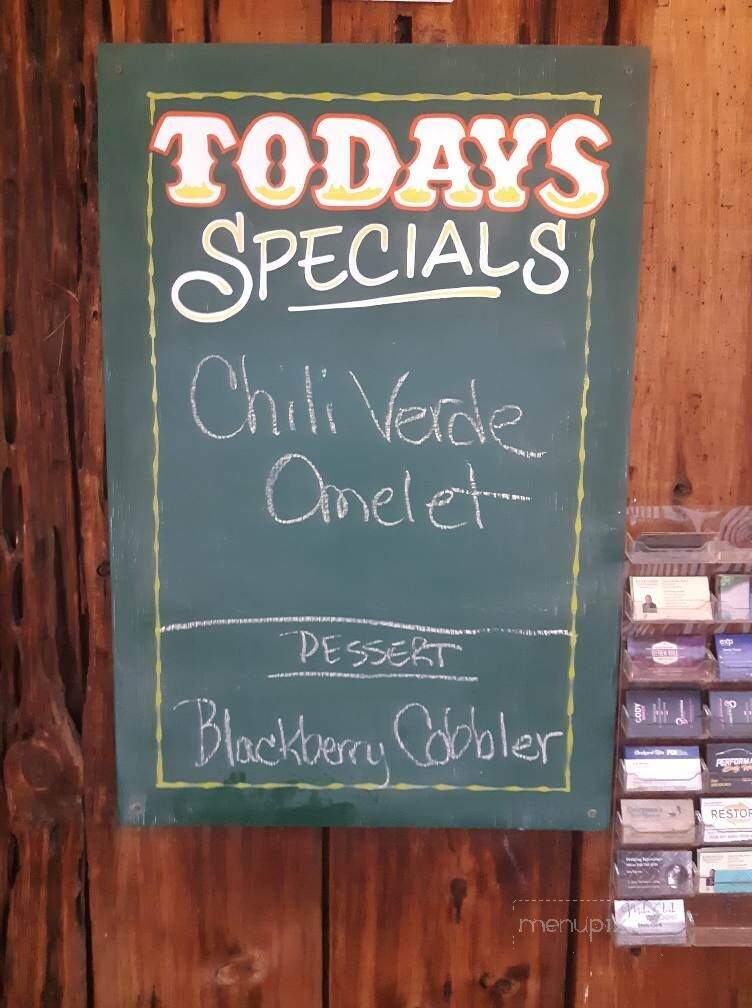 TODAYS
SPECIALS
Chili Verde
Omelet
DESSERT
Blackberry Cobbler
exp
CODY
PERFORMA
RESTOR
menupix